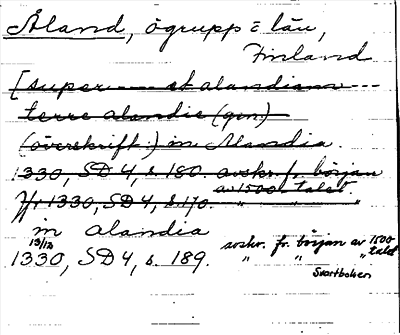 Åland, ögrupp = län,
Finland
[super --- et alandiam ---
terre alandie (gen.)
(överskrift:) in Alandia.
1330, SD 4, s. 180. avskr. fr. början
av 1500-talet.
1330, SD 4, s. 170. " " "
in alandia
13/12
1330, SD 4, s. 189. avskr. fr. början av 1500
" " " talet
Svartboken